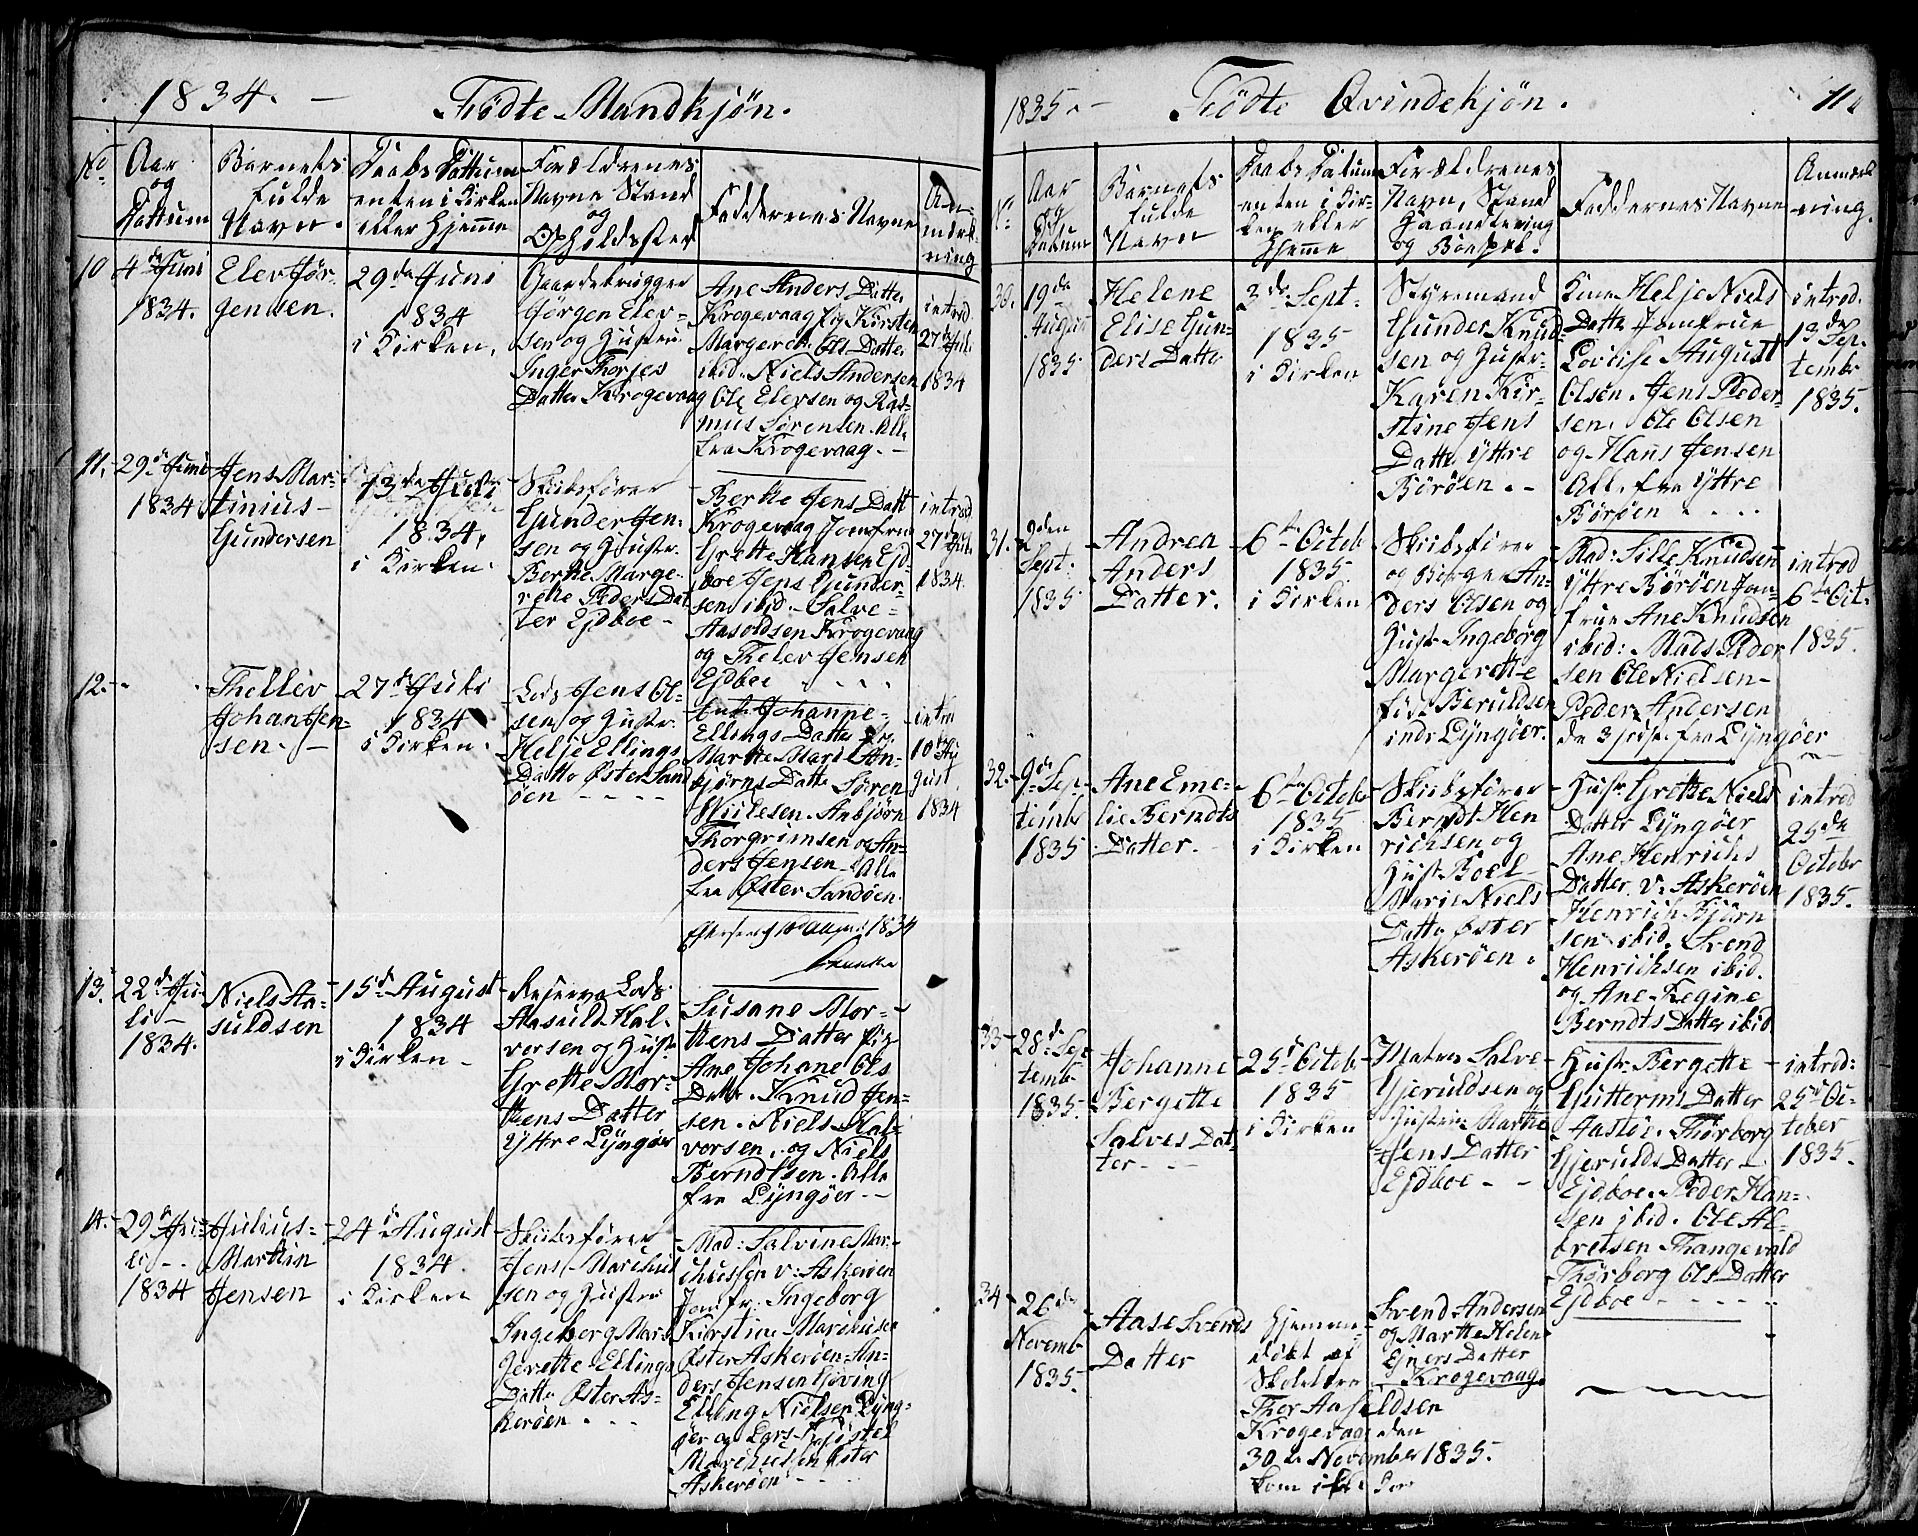 1834. –
Fødte Mandkjøn.
No
Aar
og
Dattum
Barnets
fulde
Navn.
Daabs Dattum
enten i Kirken
eller Hjemme
Forældrenes
Navne Stand
og
Opholdssted
Faddernes Navne
An-
mærk-
ning
10.
4de Juni
1834.
Elev Jør-
gensen.
29de Juni
1834
i Kirken.
Gaardebrugger
Jørgen Elev-
sen og Hustru
Inger Thorjes
Datter Krogevaag
Ane Anders Datter
Krogevaag Pig Kirsten
Margrete Ols Datter
ibid. Niels Andersen
Ole Elevsen og Ras-
mus Sørensen. Alle
fra Krogevaag. –
introd
27de Juli
1834
11.
29de Juni
1834
Jens Mar-
tinius –
Gundersen
13de Juli
1834.
i Kirken.
Skibsfører
Gunder Jen-
sen og Hustr.
Berthe Marge-
rethe Peders Dat
ter Ejdboe –
Berthe Jens Datt
Krogevaag Jomfrue
Grette Hansen Ejd-
boe Jens Gunder-
sen ibid. – Salve
Aasoldsen Krogevaag
og Thelev Jensen
Ejdboe
introd
27de Juli
1834.
12.
Thellev
Johan Jen-
sen. –
27de Juli
1834
i Kirken.
Lods Jens Ol-
sen og Hustr.
Helje Ellings
Datter Øster Sand
øen – – – –
Enke Johanne
Ellings Datter Pig
Marthe Marie An-
bjørns Datte Søren
Nielsen. Anbjørn
Thorgrimsen og An-
ders Jensen – Alle
fra Øster Sandøen.
intro
10de Au
gust
1834
Efterseet 10 August 1834
13.
22de Ju-
li –
1834.
Niels Aa-
suldsen
15de August
1834
i Kirken –
Reserve Lods
Aasuld Hal-
vorsen og Hustr
Grette Mor-
tens Datter
Yttre Lyngøer
Susane Mor-
tens Datter Pig
Ane Johane Ols
Datte. Knud Jen-
sen. Niels Hal-
vorsen. og Niels
Berndtsen. Alle
fra Lyngøer –
14.
29de Ju-
li – .
1834
Julius
Martin
Jensen
24de August
1834.
i Kirken
Skibsfører
Jens Marchus
sen og Hustru
Ingeborg Mar-
gerette Ellings
Datte Øster As-
kerøen . . .
Mad: Salvine Mar-
chussen v: Askerøen
Jomfr: Ingeborg
Kirstine Marchusen
Øster Askerøen An-
ders Jensen Gjeving
Elling Nielsen Lyng-
øer og Lars Kristel
Marchussen Øster
Askerøen
1835. –
Fødte Qvindekjøn.
11
No
Aar
og
Datum
Barnets
fulde
Navn
Daabs Datum
enten i Kir-
ken eller
Hjemme
Forældrenes
Navn, Stand
Haandtering
og Boepæl.
Faddernes Navne
Anmærk
ning.
30.
19de
August
1835
Helene
Elise Gun-
ders Datte
3de Sept-
1835
i Kirken
Styremand
Gunder Knud-
sen og Hustr-
Karen Kir-
stine Jens
Datte. Yttre
Børøen . –
Kone Helje Niels
Datte Jomfrue
Lovise August
Olsen. Jens Peder-
sen. Ole Olsen
og Hans Jensen
Alle fra Yttre
Børøen . . . .
introd.
13de Sep-
tembr
1835.
31.
2den
Sept.
1835
Andrea
Anders
Datter.
6te Octob
1835.
i Kirken
Skibsfører
og Borger An-
ders Olsen og
Hustr Ingeborg
Margerette
fød Beruldsen
indr Lyngøer.
Mad: Sille Knudsen
Yttre Børøen Jom-
frue Ane Knudsen
ibid: Mads Peder
sen Ole Nielsen –
Peder Andersen
de 3 sidst fra Lyngøer
introd
6te Oct.
1835.
32.
9de Sep-
tembr
1835
Ane Eme-
lie Berndts
Datter.
6te Octobr
1835
i Kirken
Skibsfører
Berndt Hen
richsen og
Hustr Boel
Marie Niels
Datte Øster
Askerøen.
Hustr Grette Niels
Datter Lyngøer
Ane Henrichs
Datter. V: Askerøen
Henrich Bjørn
sen ibid. Svend
Henrichsen ibid.
og Ane Regine
Berndts Datter ibid
introd
25de
Octobr
1835.
33
28de Sep
temb
1835.
Johanne
Bergette
Salves Dat
ter – –
25de Octob
1835
i Kirken
Matros Salve
Gjeruldsen og
Hustru Marthe
Jens Datter
Ejdboe – –
Hustr. Bergette
Guttorms Datter
Aastøe. Thorborg
Gjerulds Datter –
Ejdboe. Peder Han-
sen ibid. Ole Al-
bretsen Thangevald
Thorborg Ols Datter
Ejdboe – – – –
introd:
25de Oc-
tober
1835.
34
26de
Novemb
1835.
Aase Svends
Datter
Hjemme
døbt af
Skolelærer
Thor Aasuldsen
Krogevaag den
30te November 1835.
kom ikke
Svend Andersen
og Marthe Helen
Ejners Datter
Krogevaag.